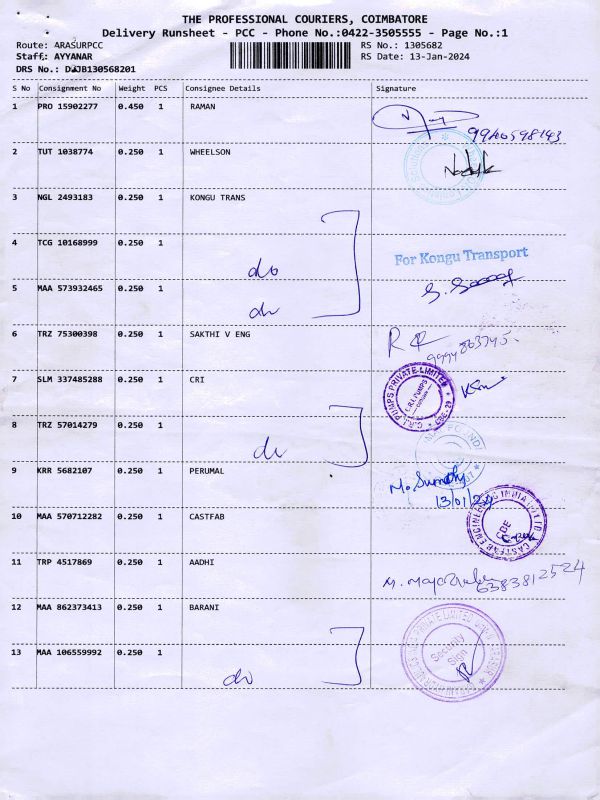 THE PROFESSIONAL COURIERS, COIMBATORE
Delivery Runsheet - PCC - Phone No.:0422-3505555 - Page No.:1
Route: ARASURPCC RS No.: 1305682
Staff: AYYANAR RS Date: 13-Jan-2024
DRS No.: DWJB130568201
S No Consignment No Weight PCS Consignee Details Signature
1 PRO 15902277 0.450 1 RAMAN
2 TUT 1038774 0.250 1 WHEELSON
3 NGL 2493183 0.250 1 KONGU TRANS
4 TCG 10168999 0.250 1
do
For Kongu Transport
5 MAA 573932465 0.250 1
do
6 TRZ 75300398 0.250 1 SAKTHI V ENG
7 SLM 337485288 0.250 1 CRI
C.R.I. PUMPS PRIVATE LIMITED
8 TRZ 57014279 0.250 1
do
9 KRR 5682107 0.250 1 PERUMAL
13/01/24
10 MAA 570712282 0.250 1 CASTFAB
CASTFAB ENGINEERING INDIA PVT LTD
CDE
11 TRP 4517869 0.250 1 AADHI
6383812524
12 MAA 862373413 0.250 1 BARANI
Security
Sign
13 MAA 106559992 0.250 1
do